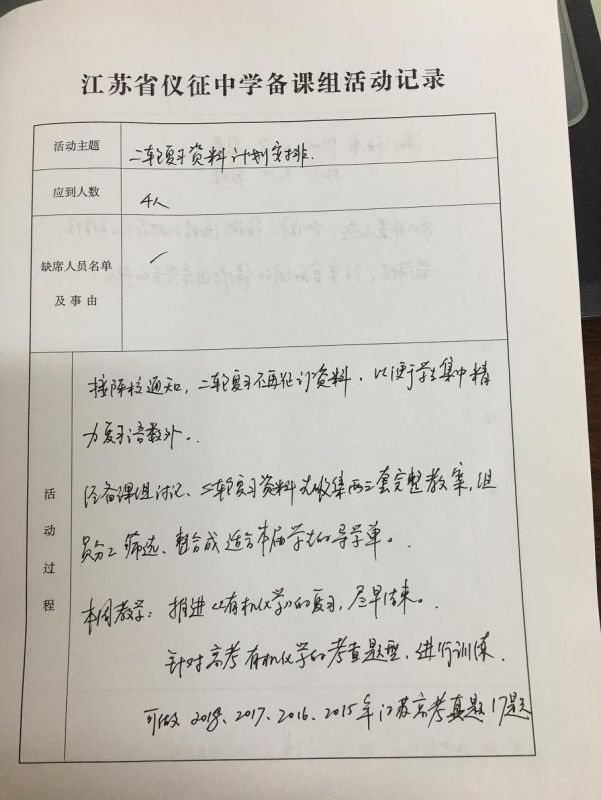 江苏省仪征中学备课组活动记录
活动主题
二轮复习资料计划安排.
应到人数
4人
缺席人员名单
及事由
活动过程
接学校通知，二轮复习不再征订资料，以便于学生集中精
力复习语数外。
经备课组讨论，二轮复习资料先收集两三套完整教案，组
员分工筛选、整合成适合本届学生的导学单。
本周教学：推进《有机化学》的复习，尽早结束。
针对高考有机化学的考查题型，进行训练.
可做 2018、2017、2016、2015年江苏高考真题17题